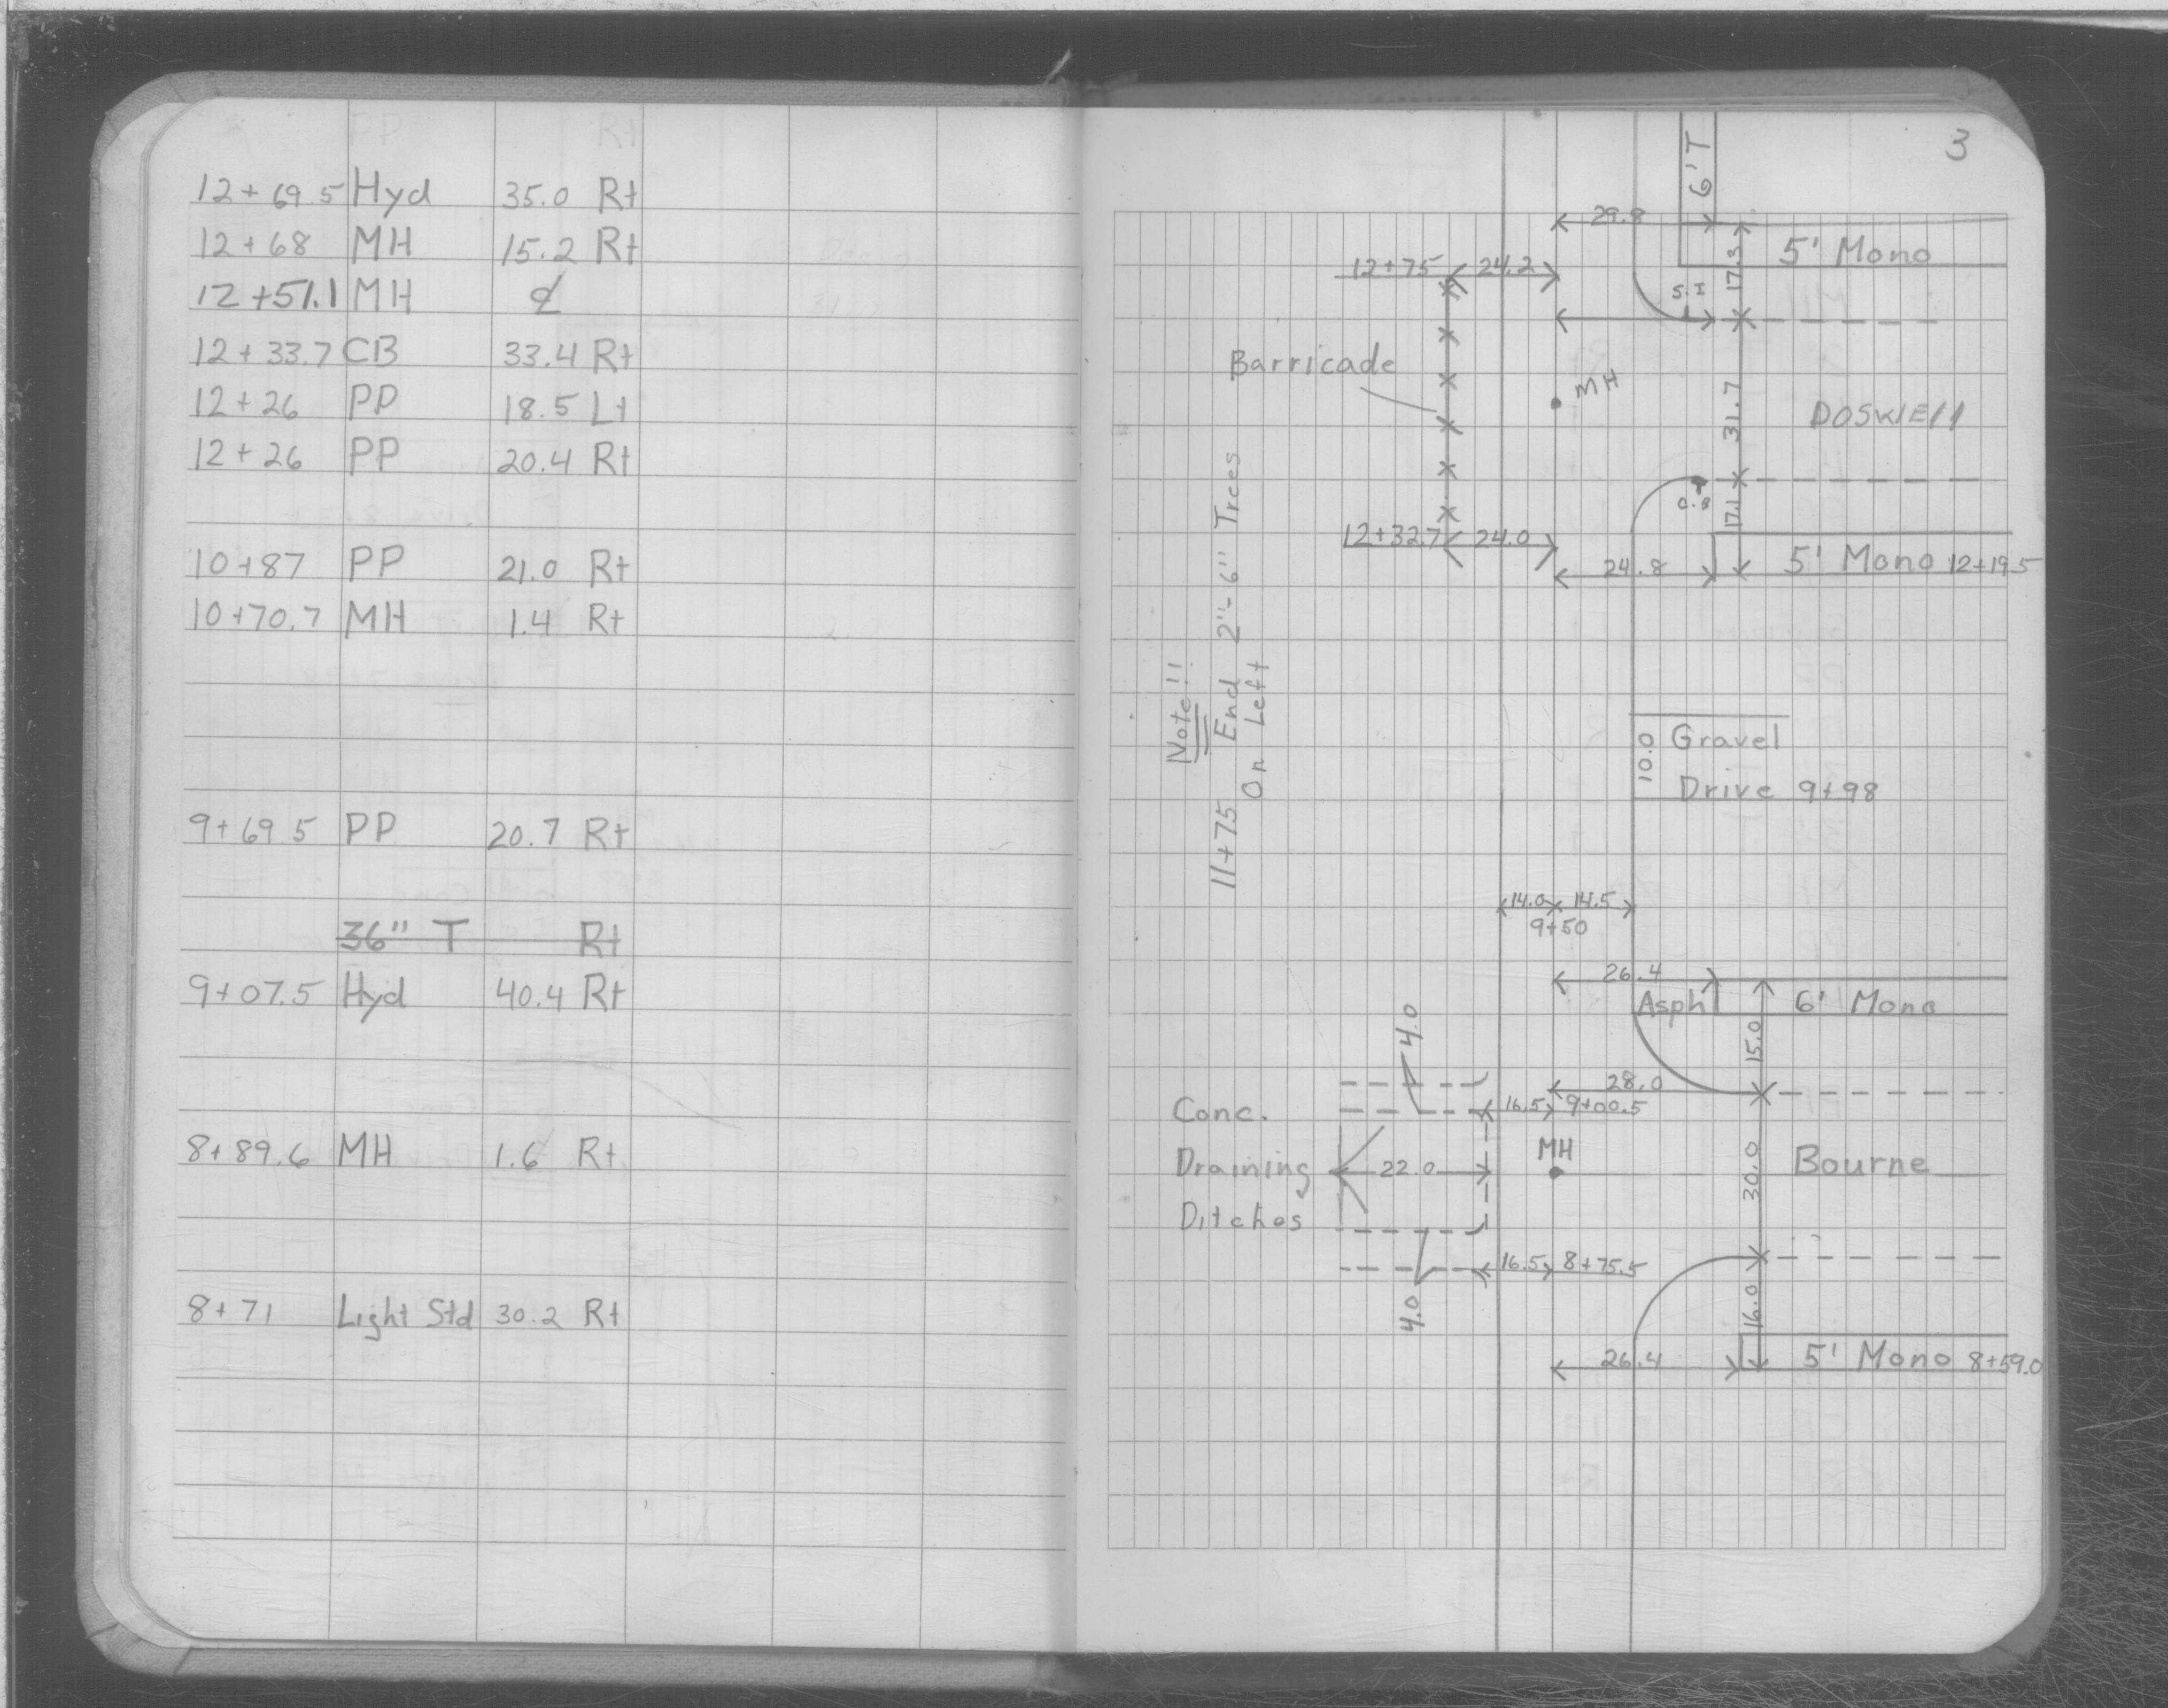 12+69.5 Hyd 35.0 Rt
12+68 MH 15.2 Rt
12+51.1 MH ℄
12+33.7 CB 33.4 Rt
12+26 PP 18.5 Lt
12+26 PP 20.4 Rt
10+87 PP 21.0 Rt
10+70.7 MH 1.4 Rt
9+69.5 PP 20.7 Rt
36" T Rt
9+07.5 Hyd 40.4 Rt
8+89.6 MH 1.6 Rt
8+71 Light Std 30.2 Rt
3
6' T
29.8
17.3
5' Mono
12+75 24.2
S.I
Barricade
MH
31.7
DOSWEll
C.B
17.1
12+32.7 24.0
24.8
5' Mono 12+19.5
Note!!
11+75 End 2"-6" Trees
On Left
10.0
Gravel
Drive 9+98
14.0 14.5
9+50
26.4
Asph
6' Mono
15.0
4.0
28.0
16.5 9+00.5
Conc.
Draining
Ditches
22.0
MH
30.0
Bourne
16.5 8+75.5
4.0
16.0
26.4
5' Mono 8+59.0